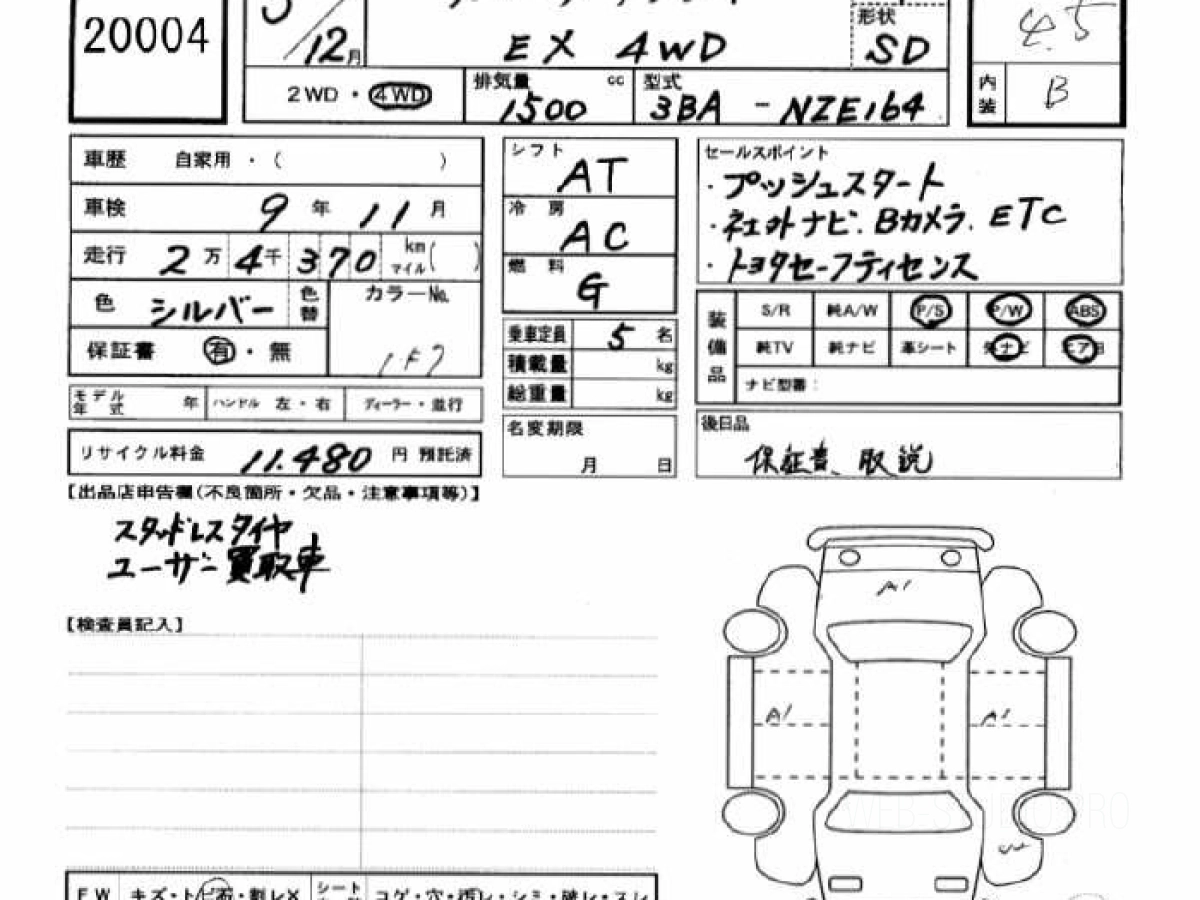 20004
12月
EX 4WD
形状
SD
4.5
2WD・4WD
排気量 cc
1500
型式
3BA-NZE164
内装
B
車歴 自家用・( )
車検 9年11月
走行 2万4千370 km マイル( )
色 シルバー 色替 カラーNo.
1F7
保証書 有・無
モデル年式 年 ハンドル 左・右 ディーラー・並行
リサイクル料金 11.480 円 預託済
シフト
AT
冷房
AC
燃料
G
乗車定員 5 名
積載量 kg
総重量 kg
名変期限
月 日
セールスポイント
・プッシュスタート
・社外ナビ.Bカメラ.ETC
・トヨタセーフティセンス
装備品
S/R 純A/W P/S P/W ABS
純TV 純ナビ 革シート ナビ
ナビ型番:
後日品
保証書、取説
【出品店申告欄(不良箇所・欠品・注意事項等)】
スタッドレスタイヤ
ユーザー買取車
【検査員記入】
A1
A1
A1
FW キズ・トビ石・割レX
シート
コゲ・穴・汚レ・シミ・破レ・スレ
WEB-STUDIO.PRO